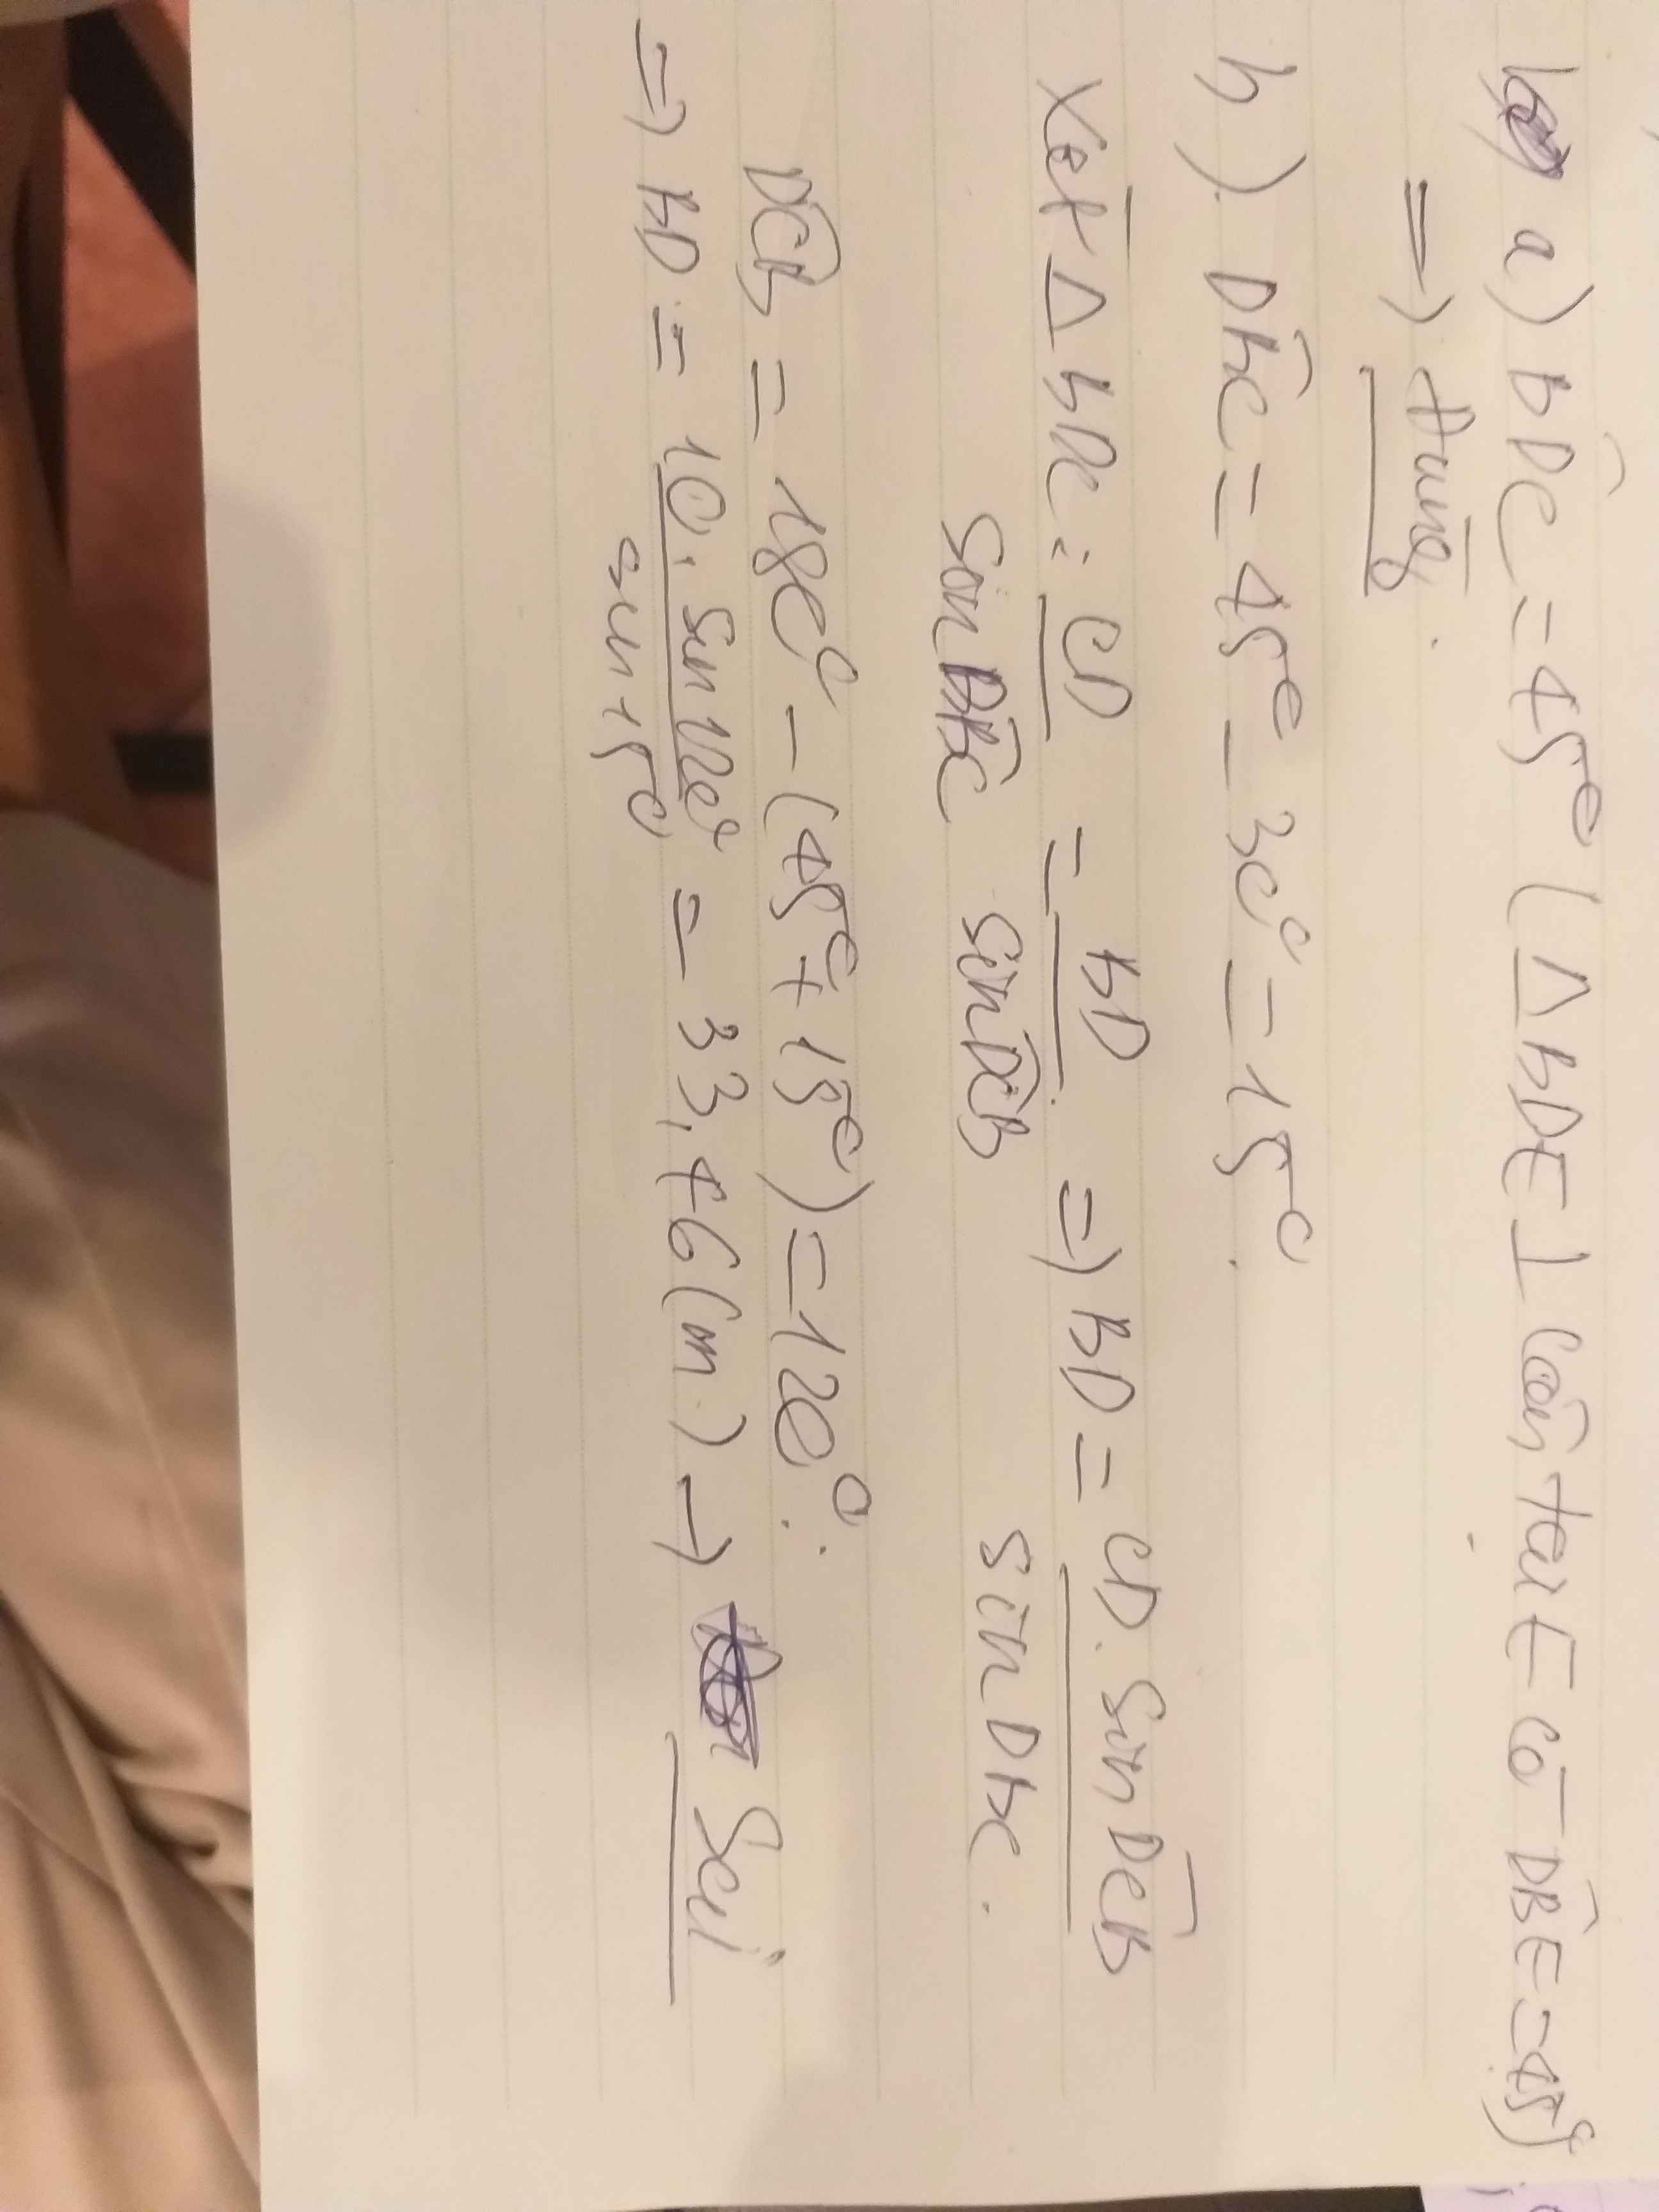 a) BDC = 45° (△BDE ⊥ cân tại E có DBE = 45°)
=> Đúng.
b) DBC = 45° - 30° = 15°.
Xét △BDC: CD / sin DBC = BD / sin DCB => BD = CD. sin DCB / sin DBC.
DCB = 180° - (45° + 15°) = 120°.
=> BD = 10. sin 120° / sin 15° = 33,46 (m) -> Sai